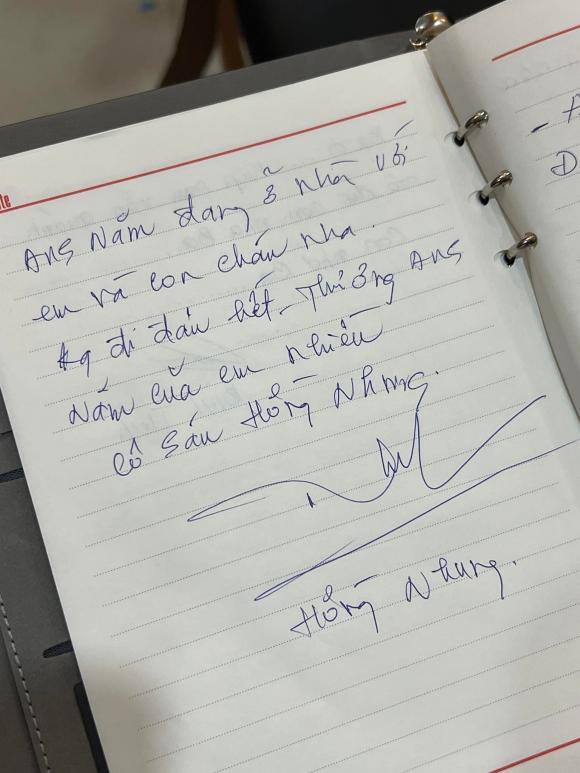 te
Anh Năm đang ở nhà với
em và con cháu nha.
kg đi đâu hết. Thương Anh
Năm của em nhiều
Cô Sáu Hồng Nhung.
Hồng Nhung.
- A
D